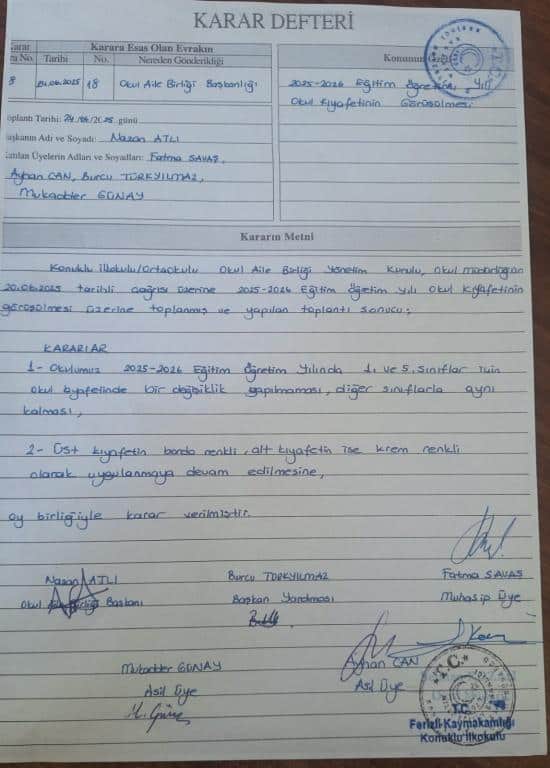 KARAR DEFTERİ
Karar Karara Esas Olan Evrakın
No. Tarihi No. Nereden Gönderildiği Konunun
8 24.06.2025 18 Okul Aile Birliği Başkanlığı
2025-2026 Eğitim Öğretim Yılı
Okul Kıyafetinin Görüşülmesi
Toplantı Tarihi: 24/06/2025 günü
Başkanın Adı ve Soyadı: Nazan ATLI
Katılan Üyelerin Adları ve Soyadları: Fatma SAVAŞ,
Ayhan CAN, Burcu TÜRKYILMAZ,
Mukadder GÜNAY
Kararın Metni
Konuklu İlkokulu/Ortaokulu Okul Aile Birliği Yönetim Kurulu, Okul müdürlüğün
20.06.2025 tarihli çağrısı üzerine 2025-2026 Eğitim Öğretim yılı Okul Kıyafetinin
görüşülmesi üzerine toplanmış ve yapılan toplantı sonucu;
KARARLAR
1- Okulumuz 2025-2026 Eğitim Öğretim Yılında 1. ve 5. sınıflar için
okul kıyafetinde bir değişiklik yapılmaması, diğer sınıflarla aynı
kalması,
2- Üst kıyafetin bordo renkli, alt kıyafetin ise krem renkli
olarak uygulanmaya devam edilmesine,
oy birliğiyle karar verilmiştir.
Nazan ATLI Burcu TÜRKYILMAZ Fatma SAVAŞ
Okul Aile Birliği Başkanı Başkan Yardımcısı Muhasip Üye
Mukadder GÜNAY Ayhan CAN
Asil Üye Asil Üye
M. Günay
T.C.
T.C.
Ferizli Kaymakamlığı
Konuklu İlkokulu